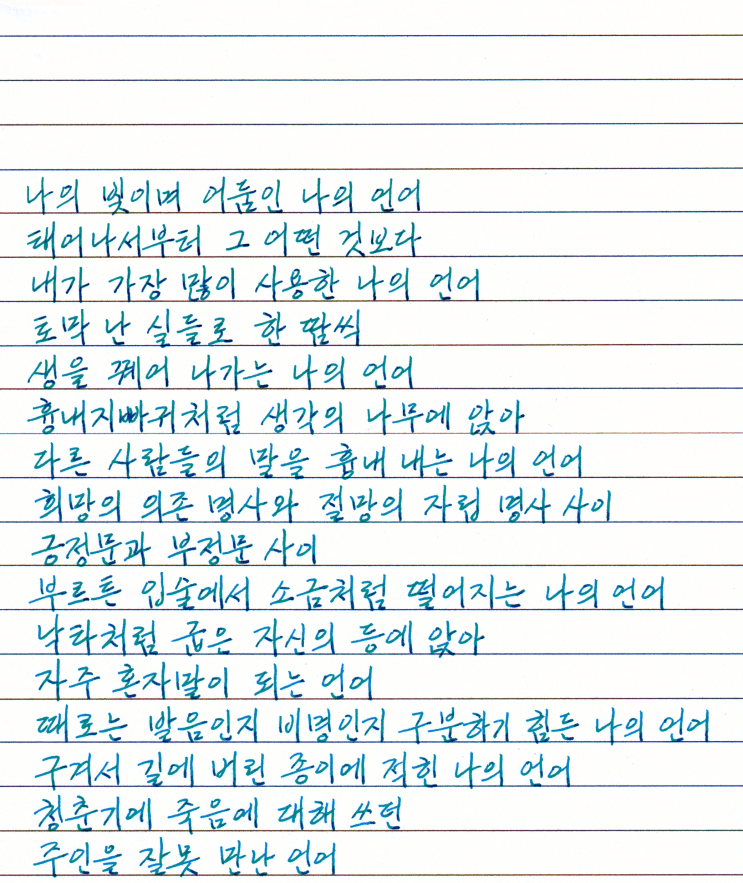 나의 빛이며 어둠인 나의 언어
태어나서부터 그 어떤 것보다
내가 가장 많이 사용한 나의 언어
토막 난 실들로 한 땀씩
생을 꿰어 나가는 나의 언어
흉내지빠귀처럼 생각의 나무에 앉아
다른 사람들의 말을 흉내 내는 나의 언어
희망의 의존 명사와 절망의 자립 명사 사이
긍정문과 부정문 사이
부르튼 입술에서 소금처럼 떨어지는 나의 언어
낙타처럼 굽은 자신의 등에 앉아
자주 혼자말이 되는 언어
때로는 발음인지 비명인지 구분하기 힘든 나의 언어
구겨서 길에 버린 종이에 적힌 나의 언어
청춘기에 죽음에 대해 쓰던
주인을 잘못 만난 언어